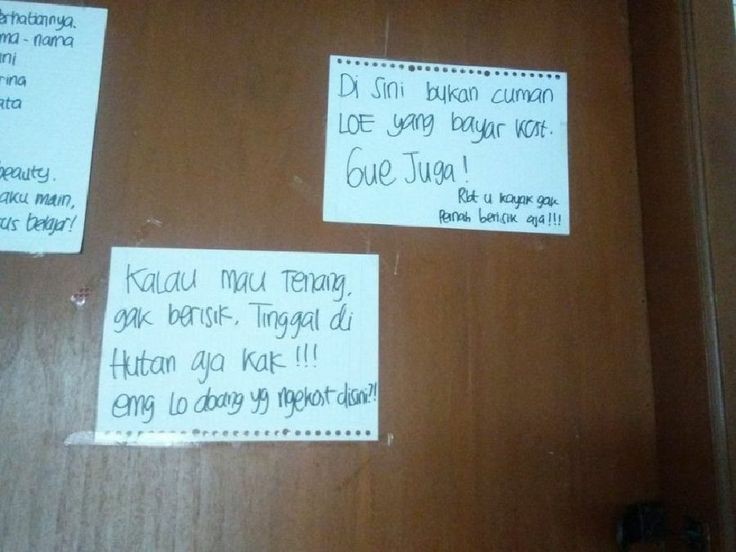 erhatiannya.
ma-nama
ini
rina
ata
beauty.
aku main,
us belajar!
Di sini bukan cuman
LOE yang bayar kost.
Gue Juga!
Rbt u kayak gak
Pernah berisik aja!!!
KALAU mau Tenang,
gak berisik, Tinggal di
Hutan aja kak!!!
emg Lo abang yg ngekost disini?!